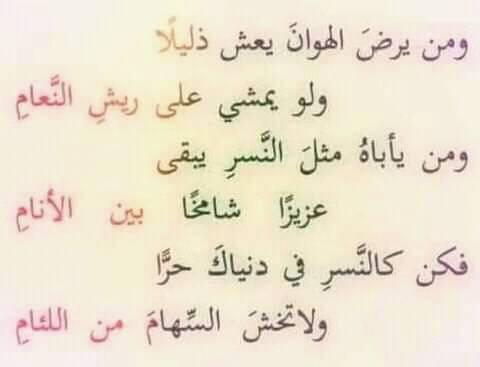 ومن يرضَ الهوانَ يعش ذليلًا
ولو يمشي على ريشِ النَّعامِ
ومن يأباهُ مثلَ النَّسرِ يبقى
عزيزًا شامخًا بين الأنامِ
فكن كالنَّسرِ في دنياكَ حرًّا
ولاتخشَ السِّهامَ من اللئامِ